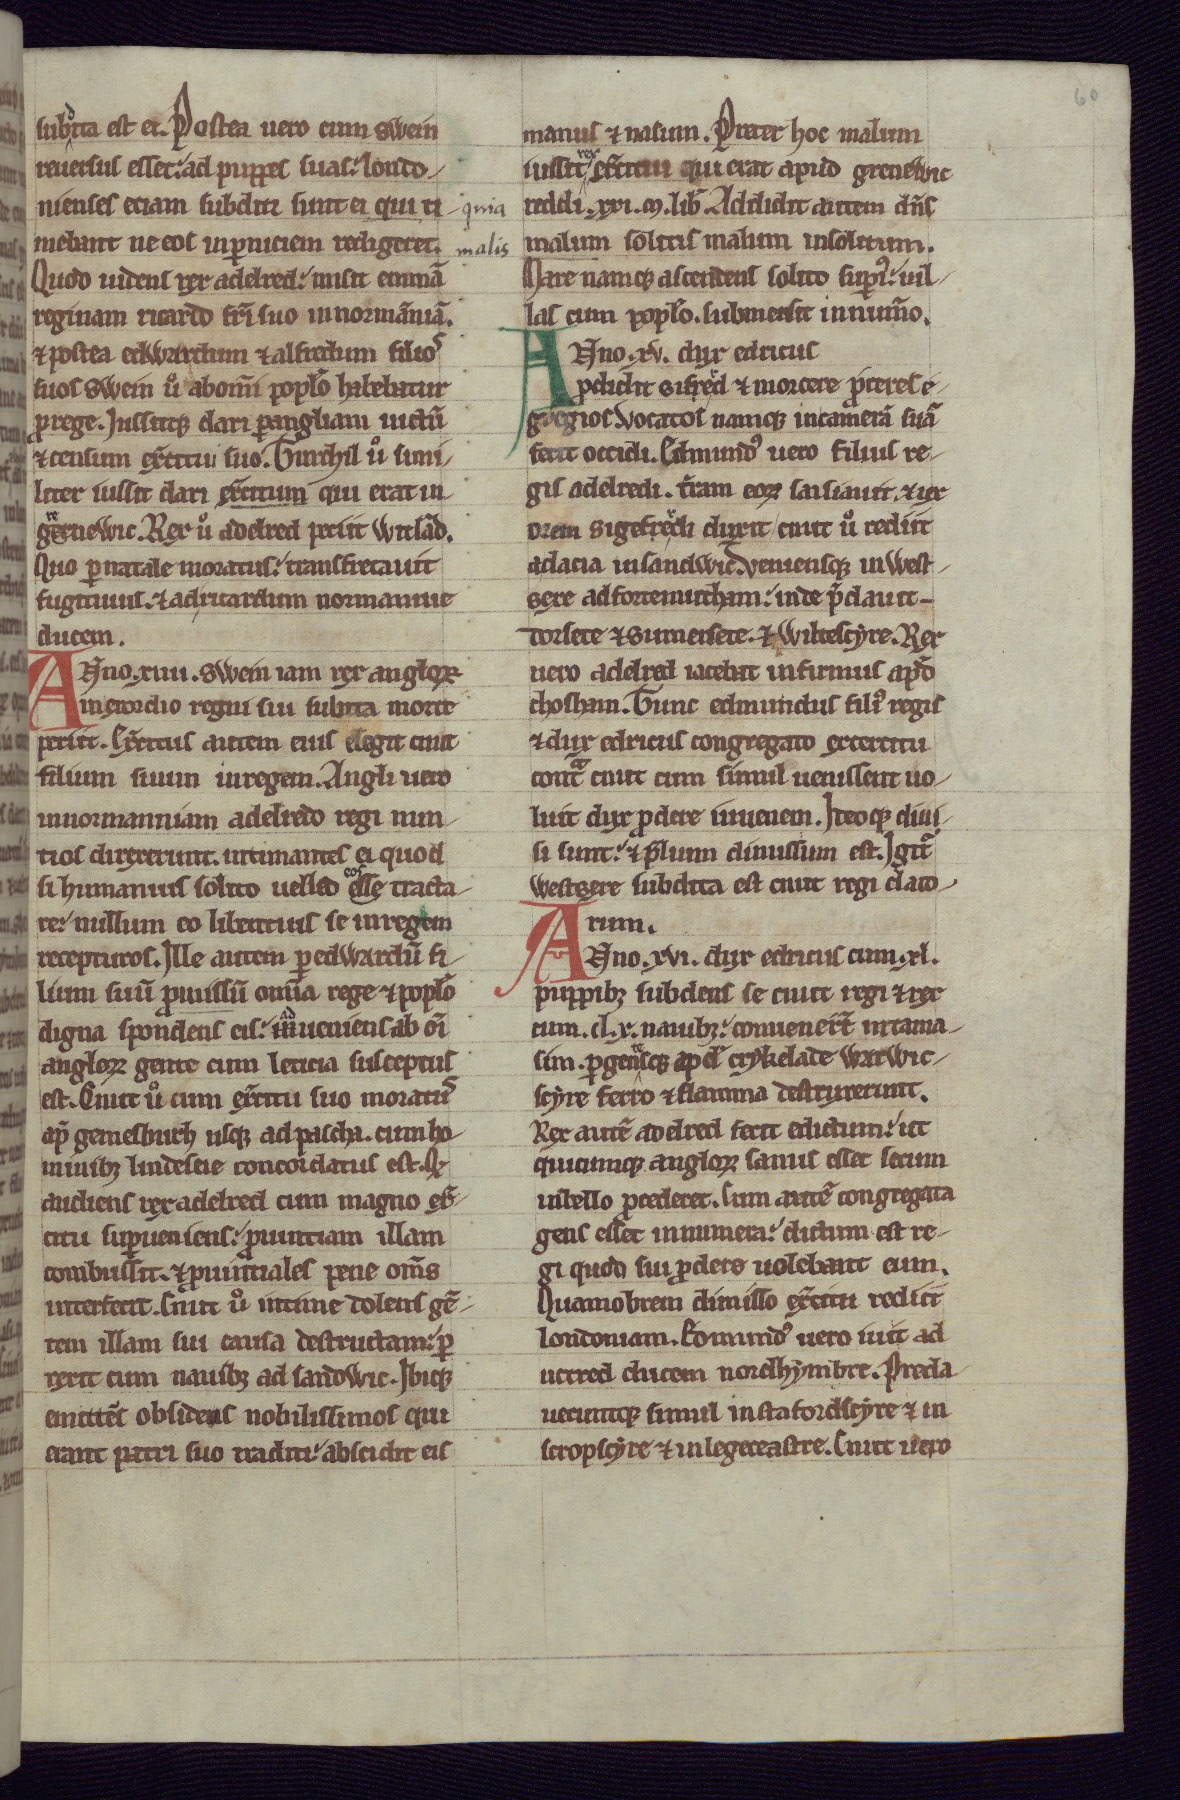 60
subdita est ei. Postea uero cum swein
reuersus esset: ad puppes suas: londo-
nienses eciam subditi sunt ei qui ti-
quia
mebant ne eos inp̱niciem redigeret.
malis
Quod uidens rex adelred: misit emmā
reginam ricardo fr̄i suo innormāniā.
⁊ postea edwardum ⁊ alfredum filioˢ
suos swein ů abom̄i poplo habebatur
p̱ rege. Jussitqȝ dari p̱ angliam uictū
⁊ censum ex̄citui suo. Turchil ů simi-
liter iussit dari ex̄citum qui erat in-
grenewic. Rex ů adelred petiit witlād.
Quo p̱ natale moratus: transfretauit
fugitiuus. ⁊ ad ricardum normannie
ducem.
Anno. xiiii. swein iam rex anglorꝝ
in exordio regni sui subita morte
periit. Ex̄citus autem eius elegit cnut
filium suum inregem. Angli uero
innormanniam adelredo regi nun-
tios direxerunt. intimantes ei quod
si humanius solito uelled eos esse tracta-
re: nullum eo libentius se inregem
recepturos. Ille autem p̱ edwardū fi-
lium suū p̱missū om̄ia rege ⁊ poplo
digna spondens eis: adueniens ab om̄i
anglorꝝ gente cum leticia susceptus
est. Cnut ů cum ex̄citu suo moratuˢ
ap̄ geinesburh usqȝ ad pascha. cum ho-
minibȝ lindeseie concordatus est. Qđ
audiens rex adelred cum magno ex̄-
citu sup̱ueniens: p̱uintiam illam
combussit. ⁊ p̱uintiales pene om̄s
interfecit. Cnut ů intime dolens gē-
tem illam sui causa destructam: p̱
rexit cum nauibȝ ad sandwic. Ibiqȝ
emittēs obsides nobilissimos qui
erant patri suo traditi: abscidit eis
manus ⁊ nasum. Preter hoc malum
iussit rex ex̄citui qui erat apud grenewic
reddi. xxi. m̄. lib̄. Addidit autem dn̄s
malum solitis malum insolitum.
Mare namqȝ ascendens solito sup̱iꝰ: uil-
las cum poplo. submersit innum̄o.
Anno. xv. dux edricus
p̱didit sifred ⁊ morcere p̱ceres e-
gregios. Vocatos namqȝ incamerā suā
fecit occidi. Edmundꝰ uero filius re-
gis adelredi. t̄ram eorꝝ saisiauit. ⁊ ux
orem sigefredi duxit cnut ů rediit
a dacia insandwic. Veniensqȝ inwest-
sexe ad fortemutham: inde p̄dauit-
dorsete ⁊ sumersete. ⁊ wiltescyre. Rex
uero adelred iacebat infirmus apud
chosham. Tunc edmundus filiꝰ regis
⁊ dux edricus congregato exercitu
contra cnut cum simul uenissent uo-
luit dux p̱dere iuuenem. Ideoqȝ diui-
si sunt: ⁊ p̄lium dimissum est. Igitᵃ
westsexe subdita est cnut regi daco-
rum.
Anno. xvi. dux edricus cum. xl.
puppibȝ subdens se cnut regi ⁊ rex
cum. cl x. nauibȝ: conuenert̄ intama-
sim. p̱gentesqȝ apud crykelade warwic-
scyre ferro ⁊ flamma destruxerunt.
Rex autē adelred fecit edictum: ut
quicumqȝ anglorꝝ sanus esset secum
inbello p̱cederet. Cum autē congregata
gens esset innumera: dictum est re-
gi quod sui p̱dere uolebant eum.
Quamobrem dimisso ex̄citu rediit
londoniam. Edmundꝰ uero iuit ad
uctred ducem nordhymbre. Preda-
ueruntqȝ simul instafordscyre ⁊ in
scropscyre ⁊ inlegeceastre. Cnut uero